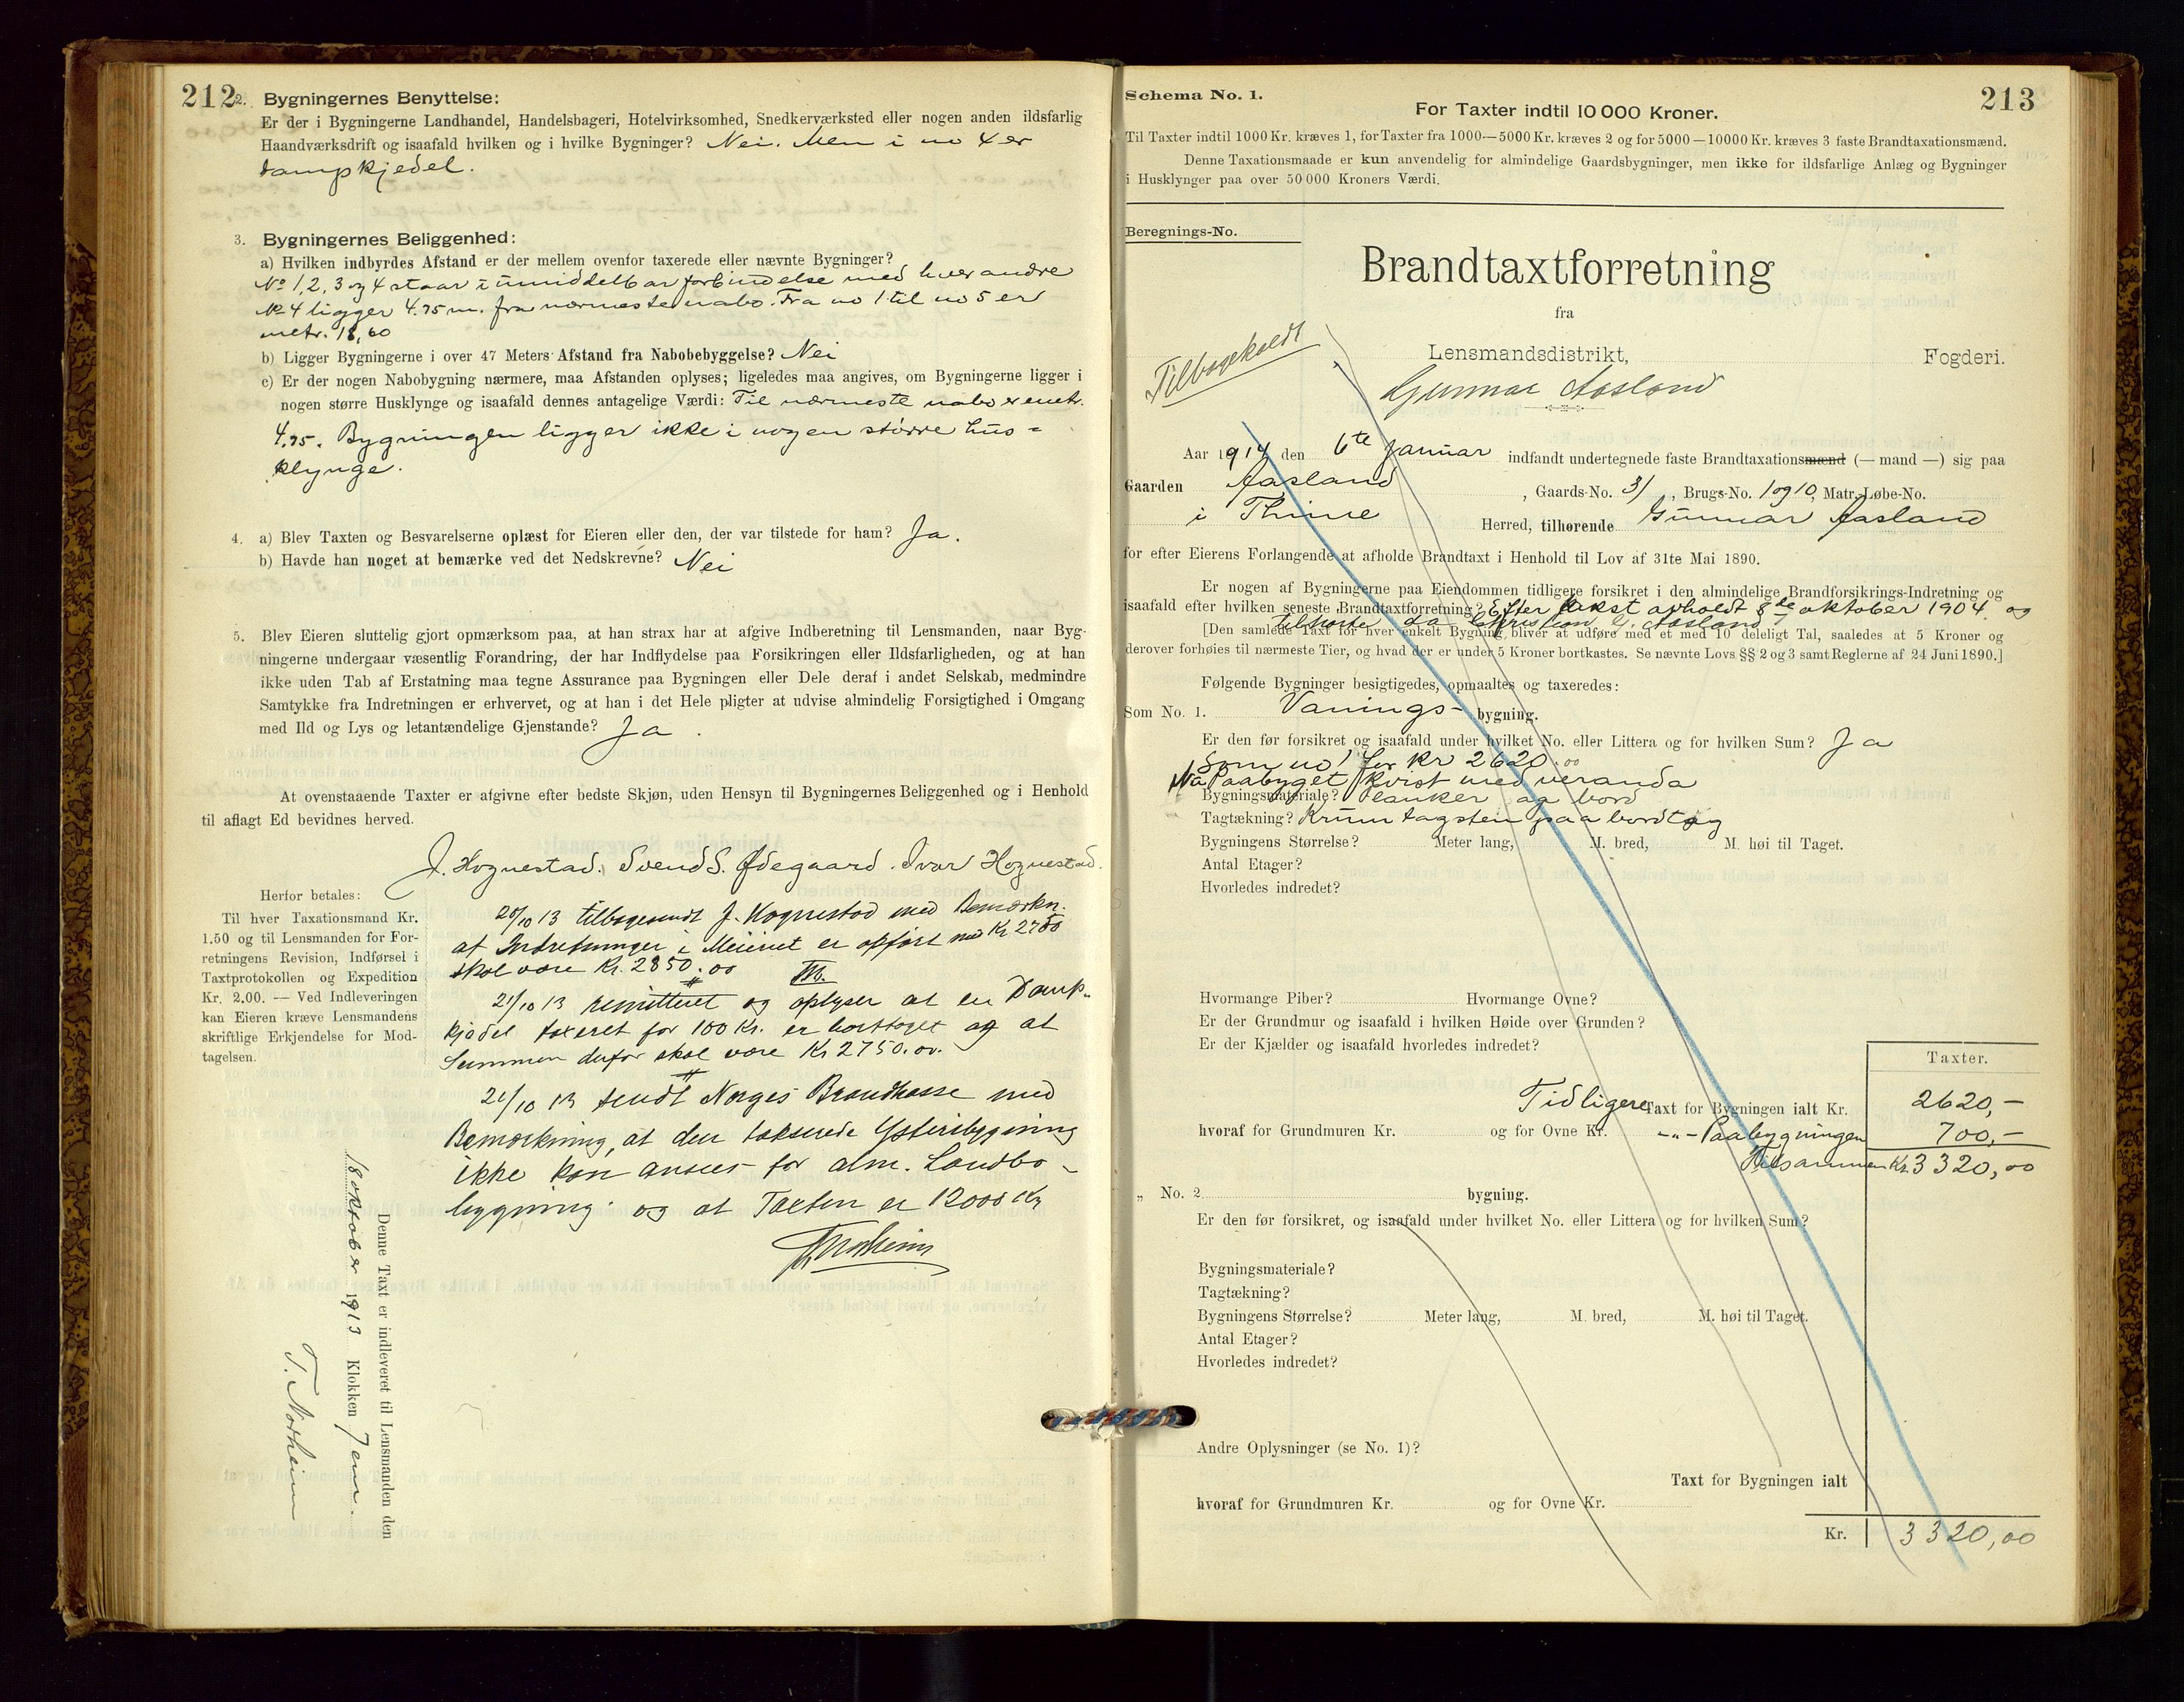 212
2. Bygningernes Benyttelse:
Er der i Bygningerne Landhandel, Handelsbageri, Hotelvirksomhed, Snedkerværksted eller nogen anden ildsfarlig
Haandværksdrift og isaafald hvilken og i hvilke Bygninger? Nei. Men i no 4 er
dampkjedel.
3. Bygningernes Beliggenhed:
a) Hvilken indbyrdes Afstand er der mellem ovenfor taxerede eller nævnte Bygninger?
No 1, 2, 3 og 4 staar i umiddelbar forbindelse med hverandre
No 4 ligger 4.75 m. fra nærmeste nabo. Fra no 1 til no 5 er
metr. 18,60
b) Ligger Bygningerne i over 47 Meters Afstand fra Nabobebyggelse? Nei
c) Er der nogen Nabobygning nærmere, maa Afstanden oplyses; ligeledes maa angives, om Bygningerne ligger i
nogen større Husklynge og isaafald dennes antagelige Værdi: Til nærmeste nabo er metr.
4.75. Bygningen ligger ikke i nogen större hus=
klynge.
4. a) Blev Taxten og Besvarelserne oplæst for Eieren eller den, der var tilstede for ham? Ja.
b) Havde han noget at bemærke ved det Nedskrevne? Nei
5. Blev Eieren sluttelig gjort opmærksom paa, at han strax har at afgive Indberetning til Lensmanden, naar Byg-
ningerne undergaar væsentlig Forandring, der har Indflydelse paa Forsikringen eller Ildsfarligheden, og at han
ikke uden Tab af Erstatning maa tegne Assurance paa Bygningen eller Dele deraf i andet Selskab, medmindre
Samtykke fra Indretningen er erhvervet, og at han i det Hele pligter at udvise almindelig Forsigtighed i Omgang
med Ild og Lys og letantændelige Gjenstande? Ja.
At ovenstaaende Taxter er afgivne efter bedste Skjøn, uden Hensyn til Bygningernes Beliggenhed og i Henhold
til aflagt Ed bevidnes herved.
J. Hognestad. Svend S. Ødegaard. Ivar Hognestad.
Herfor betales:
Til hver Taxationsmand Kr.
1.50 og til Lensmanden for For-
retningens Revision, Indførsel i
Taxtprotokollen og Expedition
Kr. 2.00. — Ved Indleveringen
kan Eieren kræve Lensmandens
skriftlige Erkjendelse for Mod-
tagelsen.
20/10 13 tilbagesendt J. Hognestad med Bemærkn.
at Indretninger i Meieriet er opført med Kr 2750
skal være Kr. 2850.00
21/10 13 remitteret og oplyser at en Damp-
kjedel taxeret for 100 Kr. er borttaget og at
Summen derfor skal være Kr 2750.00.
21/10 13 sendt Norges Brandkasse med
Bemærkning, at den takserede Ysteribygning
ikke kan ansees for alm. Landbo-
bygning og at Taxten er 12000 Kr
Denne Taxt er indleveret til Lensmanden den
18 oktober 1913 Klokken 7 em.
T. Norheim
213
Schema No. 1.
For Taxter indtil 10 000 Kroner.
Til Taxter indtil 1000 Kr. kræves 1, for Taxter fra 1000—5000 Kr. kræves 2 og for 5000—10000 Kr. kræves 3 faste Brandtaxationsmænd.
Denne Taxationsmaade er kun anvendelig for almindelige Gaardsbygninger, men ikke for ildsfarlige Anlæg og Bygninger
i Husklynger paa over 50 000 Kroners Værdi.
Beregnings-No.
Brandtaxtforretning
fra
Tilbagekaldt
Lensmandsdistrikt, Fogderi.
Gunnar Aasland
Aar 1914 den 6te Januar indfandt undertegnede faste Brandtaxationsmænd (— mand —) sig paa
Gaarden Aasland, Gaards-No. 31, Brugs-No. 1 og 10, Matr.-Løbe-No.
i Thime Herred, tilhørende Gunnar Aasland
for efter Eierens Forlangende at afholde Brandtaxt i Henhold til Lov af 31te Mai 1890.
Er nogen af Bygningerne paa Eiendommen tidligere forsikret i den almindelige Brandforsikrings-Indretning og
isaafald efter hvilken seneste Brandtaxtforretning? Efter takst avholdt 8de oktober 1904 og
tilhørte da G. Aasland
[Den samlede Taxt for hver enkelt Bygning bliver at udføre med et med 10 deleligt Tal, saaledes at 5 Kroner og
derover forhøies til nærmeste Tier, og hvad der er under 5 Kroner bortkastes. Se nævnte Lovs §§ 2 og 3 samt Reglerne af 24 Juni 1890.]
Følgende Bygninger besigtigedes, opmaaltes og taxeredes:
Som No. 1. Vanings- bygning.
Er den før forsikret og isaafald under hvilket No. eller Littera og for hvilken Sum? Ja
Som no 1 for Kr 2620.00
Na Paabyget kvist med veranda
Bygningsmateriale? Planker og bord
Tagtækning? Krum tagsten paa bordtag
Bygningens Størrelse? Meter lang, M. bred, M. høi til Taget.
Antal Etager?
Hvorledes indredet?
Hvormange Piber? Hvormange Ovne?
Er der Grundmur og isaafald i hvilken Høide over Grunden?
Er der Kjælder og isaafald hvorledes indredet?
Taxter.
Tidligere Taxt for Bygningen ialt Kr. 2620,—
hvoraf for Grundmuren Kr. og for Ovne Kr. -„- Paabygningen 700,—
Tilsammen Kr. 3320,00
„ No. 2 bygning.
Er den før forsikret, og isaafald under hvilket No. eller Littera og for hvilken Sum?
Bygningsmateriale?
Tagtækning?
Bygningens Størrelse? Meter lang, M. bred, M. høi til Taget.
Antal Etager?
Hvorledes indredet?
Andre Oplysninger (se No. 1)?
Taxt for Bygningen ialt
hvoraf for Grundmuren Kr. og for Ovne Kr.
Kr. 3320,00